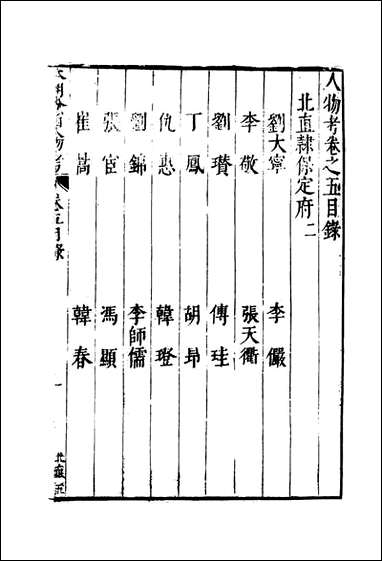 人物考卷之五目錄
北直隸保定府二
劉大寧 李儼
李敬 張天衢
劉瓚 傅珪
丁鳳 胡昂
仇惠 韓璒
劉錦 李師儒
張宦 馮顯
崔嵩 韓春
卷五目錄
一
北直五